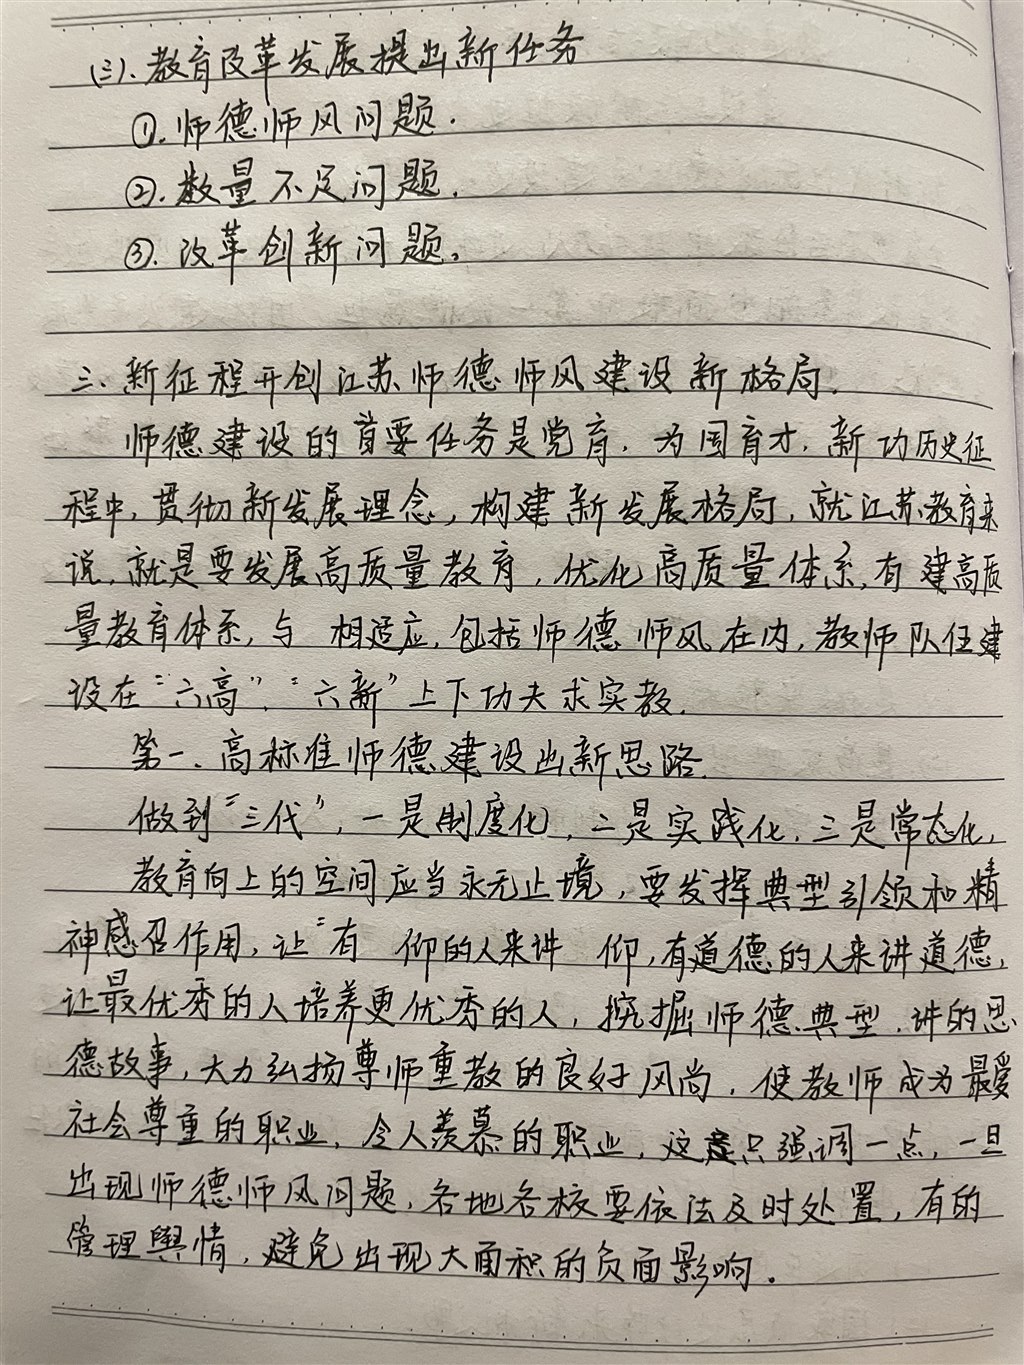 (三).教育改革发展提出新任务
①.师德师风问题.
②.数量不足问题.
③.改革创新问题。
三、新征程开创江苏师德师风建设新格局.
师德建设的首要任务是党育,为国育才,新功历史征
程中,贯彻新发展理念,构建新发展格局,就江苏教育来
说,就是要发展高质量教育,优化高质量体系,有建高质
量教育体系,与 相适应,包括师德师风在内,教师队伍建
设在“六高”、“六新”上下功夫求实教.
第一、高标准师德建设出新思路.
做到“三代”,一是制度化,二是实践化,三是常态化,
教育向上的空间应当永无止境,要发挥典型引领和精
神感召作用,让“有 仰的人来讲 仰,有道德的人来讲道德,
让最优秀的人培养更优秀的人,挖掘师德典型,讲的思
德故事,大力弘扬尊师重教的良好风尚,使教师成为最受
社会尊重的职业,令人羡慕的职业,这只强调一点,一旦
出现师德师风问题,各地各校要依法及时处置,有的
管理舆情,避免出现大面积的负面影响.